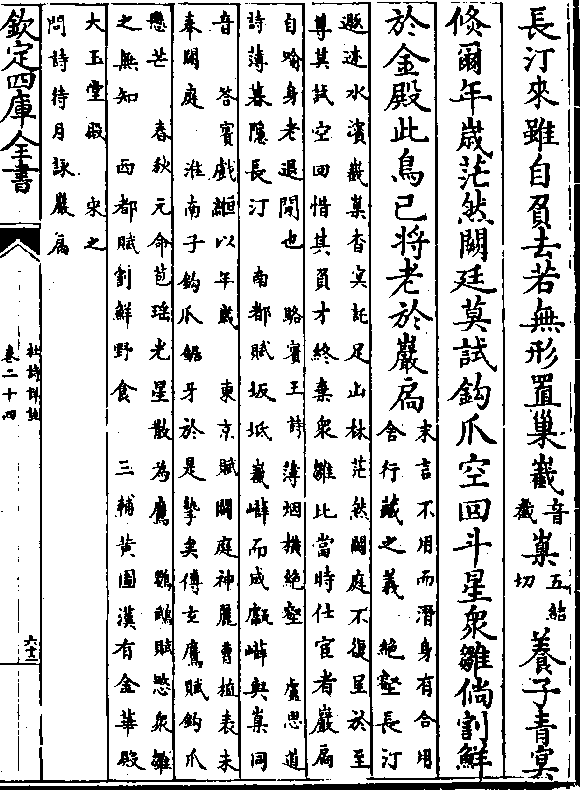 長汀來雖自負去若無形置巢嶻音截嵲五結切養子青冥
倐爾年歲茫然闕廷莫試鈎爪空回斗星衆雛倘割鮮
於金殿此鳥已將老於巖扃
末言不用而潛身有合用
舍行藏之義　絶壑長汀
遯迹水濵嶻嵲杳冥託足山林茫然闕庭不復呈於至
尊其試空回惜其負才終棄衆雛比當時仕宦者巖扃
自喻身老退閒也　駱賓王詩薄烟橫絶壑　盧思道
詩薄暮隱長汀　南都賦坂坻嶻嶭而成甗嶭與嵲同
音　答賓戲緬以年歲　東京賦闕庭神麗曹植表未
奉闕庭　淮南子鈎爪鋸牙於是摯矣傅玄鷹賦鈎爪
懸芒　春秋元命苞瑶光星散為鷹　鸚鵡賦愍衆雛
之無知　西都賦割鮮野食　三輔黄圖漢有金華殿
大玉堂殿　宋之
問詩待月詠巖扃
欽定四庫全書
杜詩詳註
卷二十四
六十三